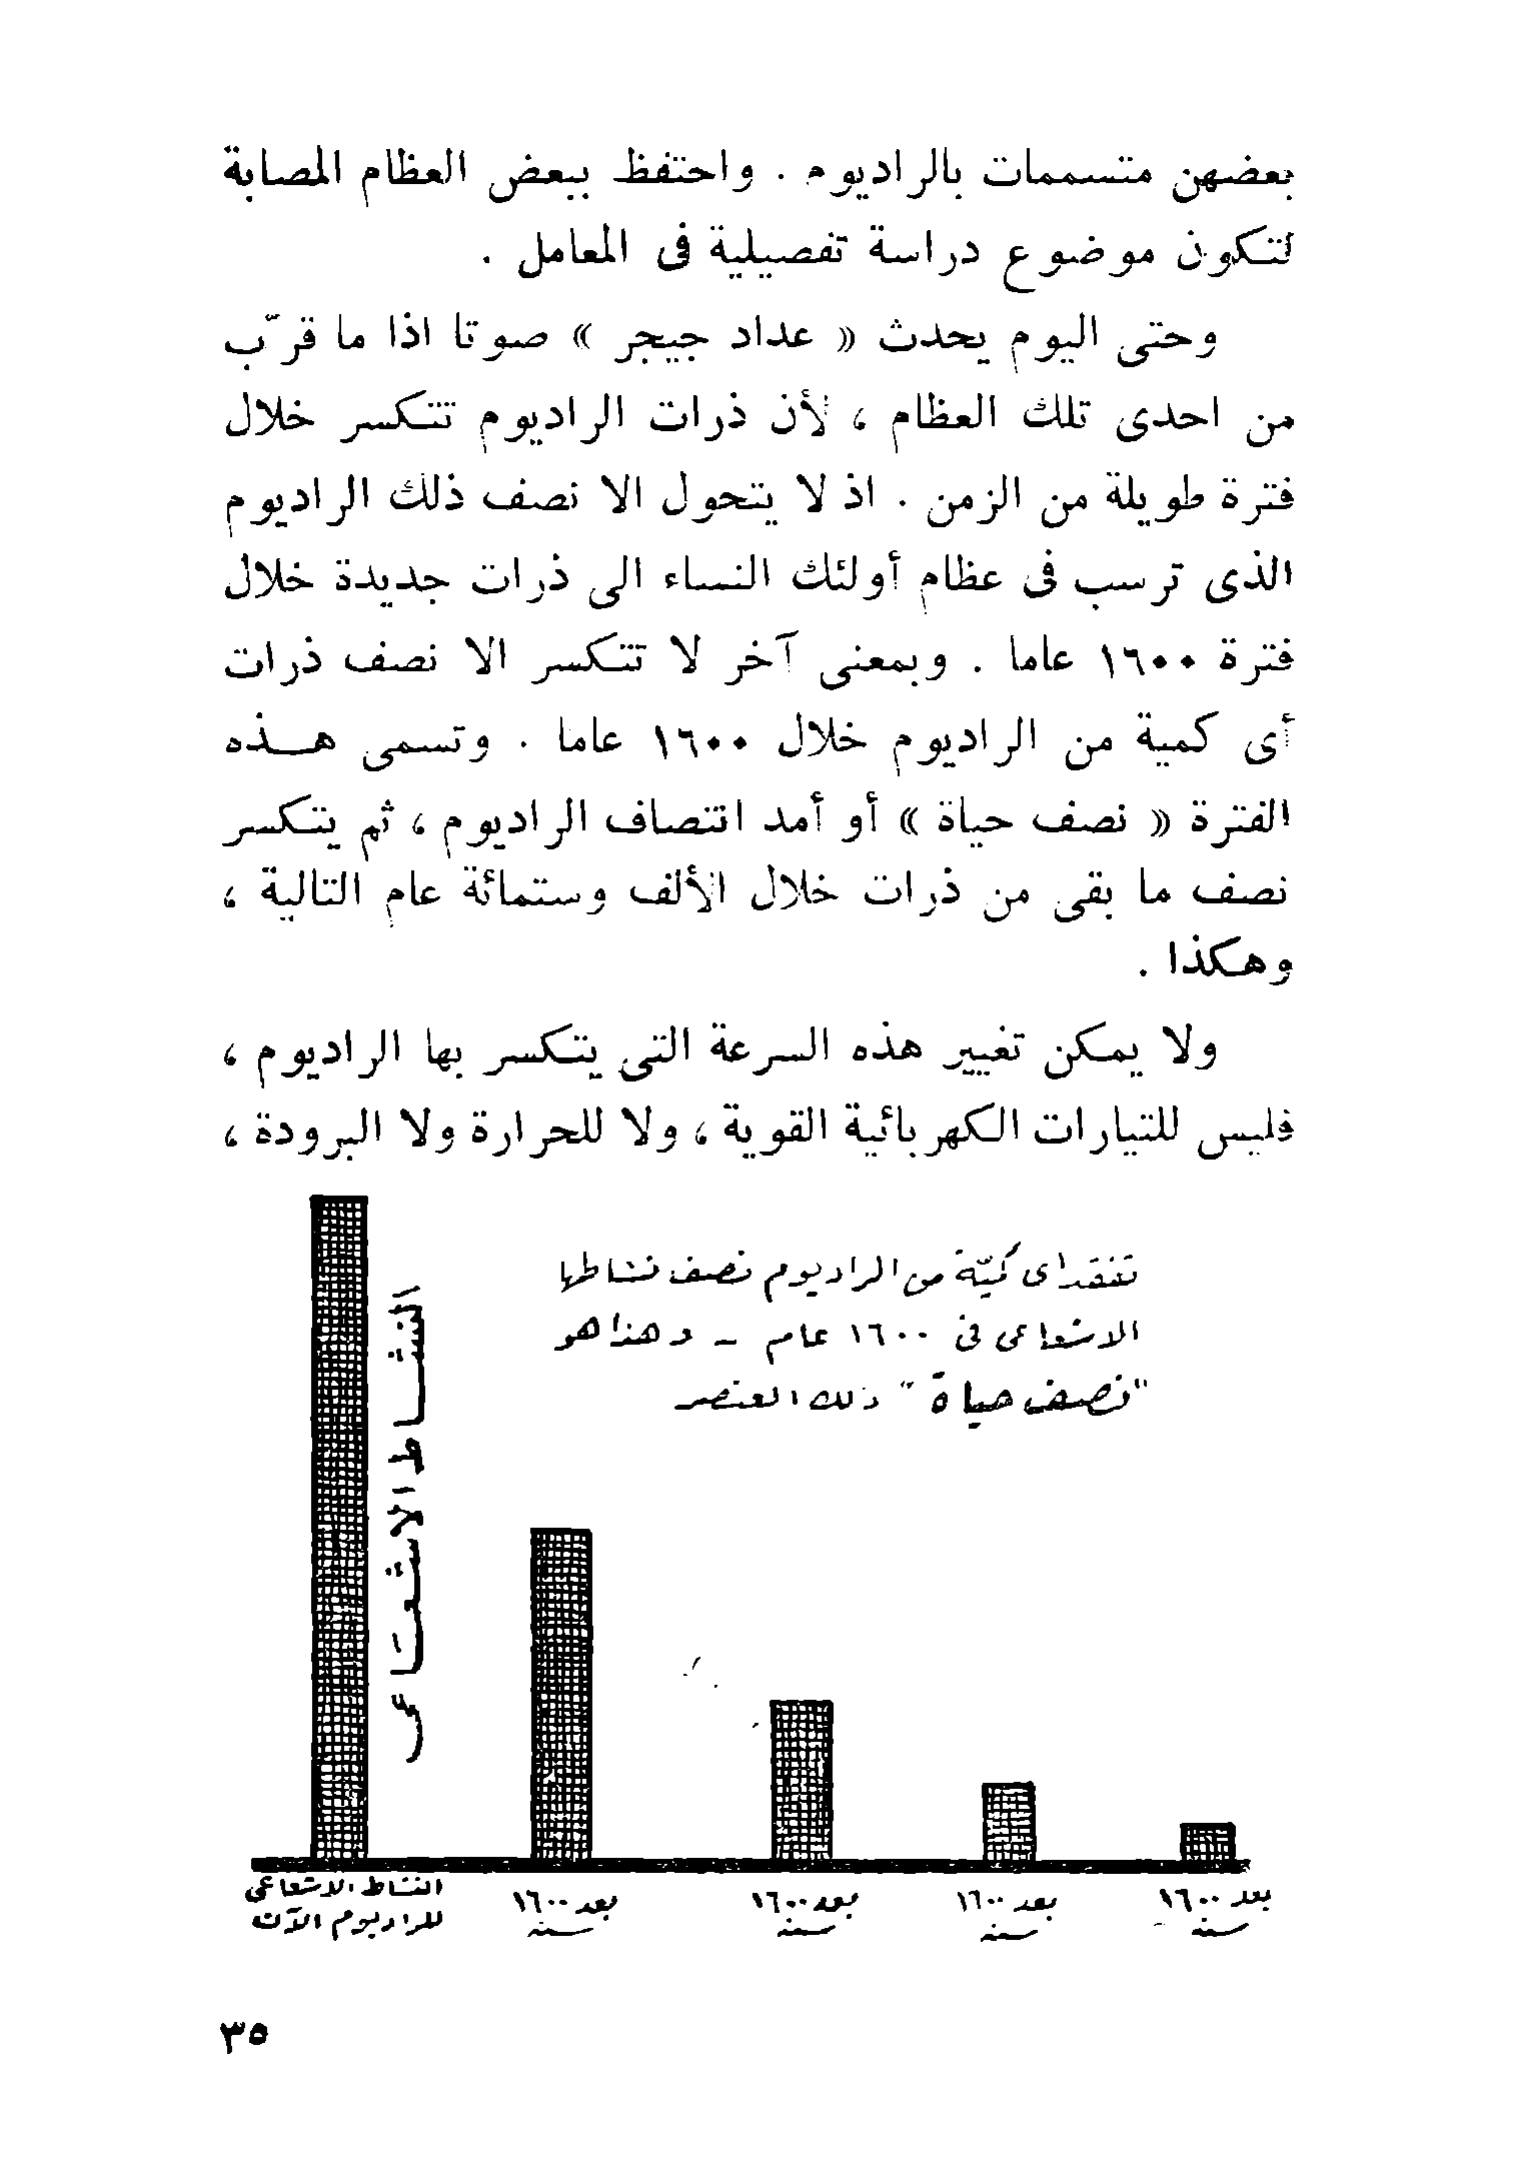 بعضهن متسممات بالراديوم . واحتفظ ببعض العظام المصابة
لتكون موضوع دراسة تفصيلية فى المعامل .
وحتى اليوم يحدث « عداد جيجر » صوتا اذا ما قرّب
من احدى تلك العظام ، لأن ذرات الراديوم تتكسر خلال
فترة طويلة من الزمن . اذ لا يتحول الا نصف ذلك الراديوم
الذى ترسب فى عظام أولئك النساء الى ذرات جديدة خلال
فترة ١٦٠٠ عاما . وبمعنى آخر لا تتكسر الا نصف ذرات
أى كمية من الراديوم خلال ١٦٠٠ عاما . وتسمى هــذه
الفترة « نصف حياة » أو أمد انتصاف الراديوم ، ثم يتكسر
نصف ما بقى من ذرات خلال الألف وستمائة عام التالية ،
وهكذا .
ولا يمكن تغيير هذه السرعة التى يتكسر بها الراديوم ،
فليس للتيارات الكهربائية القوية ، ولا للحرارة ولا البرودة ،
تفقد اى كميّة من الراديوم نصف نشاطها
الاشعاعى فى ١٦٠٠ عام - وهذا هو
"نصف حياة" ذلك العنصر
النشــاط الاشعــاعى
النشاط الاشعاعى
للراديوم الآن
بعد ١٦٠٠
سنة
بعد ١٦٠٠
سنة
بعد ١٦٠٠
سنة
بعد ١٦٠٠
سنة
٣٥